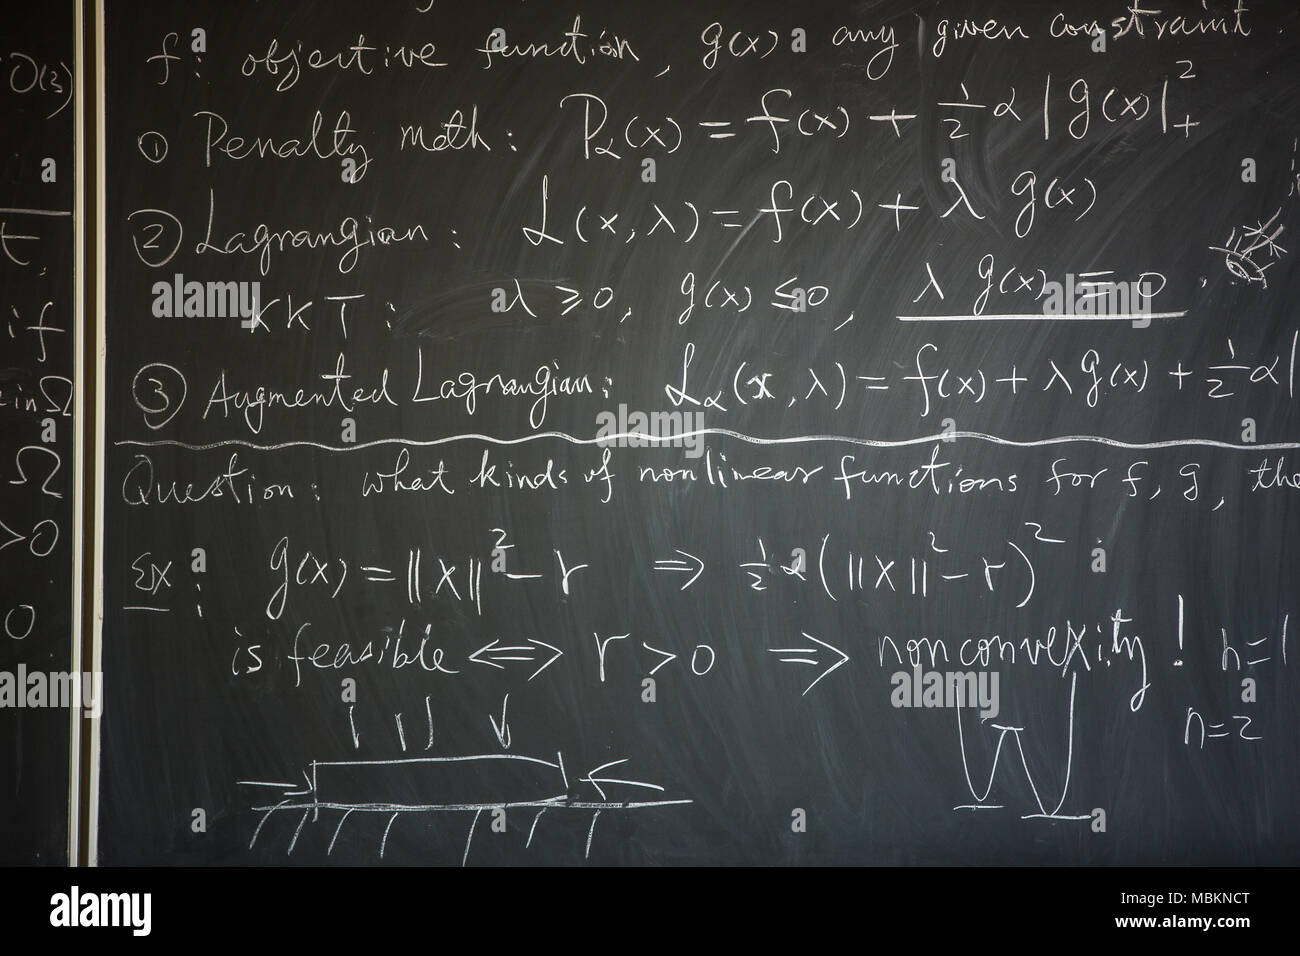 O(3)
t.
if
in Ω
Ω
>0
0
f: objective function, g(x) any given constraint.
① Penalty meth: Pα(x) = f(x) + ½ α |g(x)|²₊
② Lagrangian: L(x, λ) = f(x) + λ g(x)
KKT: λ ≥ 0, g(x) ≤ 0, λ g(x) = 0.
③ Augmented Lagrangian: Lα(x, λ) = f(x) + λ g(x) + ½ α |
Question: what kinds of nonlinear functions for f, g, the
Ex: g(x) = ||x||² - r ⇒ ½ α (||x||² - r)²
is feasible ⇔ r > 0 ⇒ nonconvexity! n=1
n=2
alamy
Image ID: MBKNCT
www.alamy.com